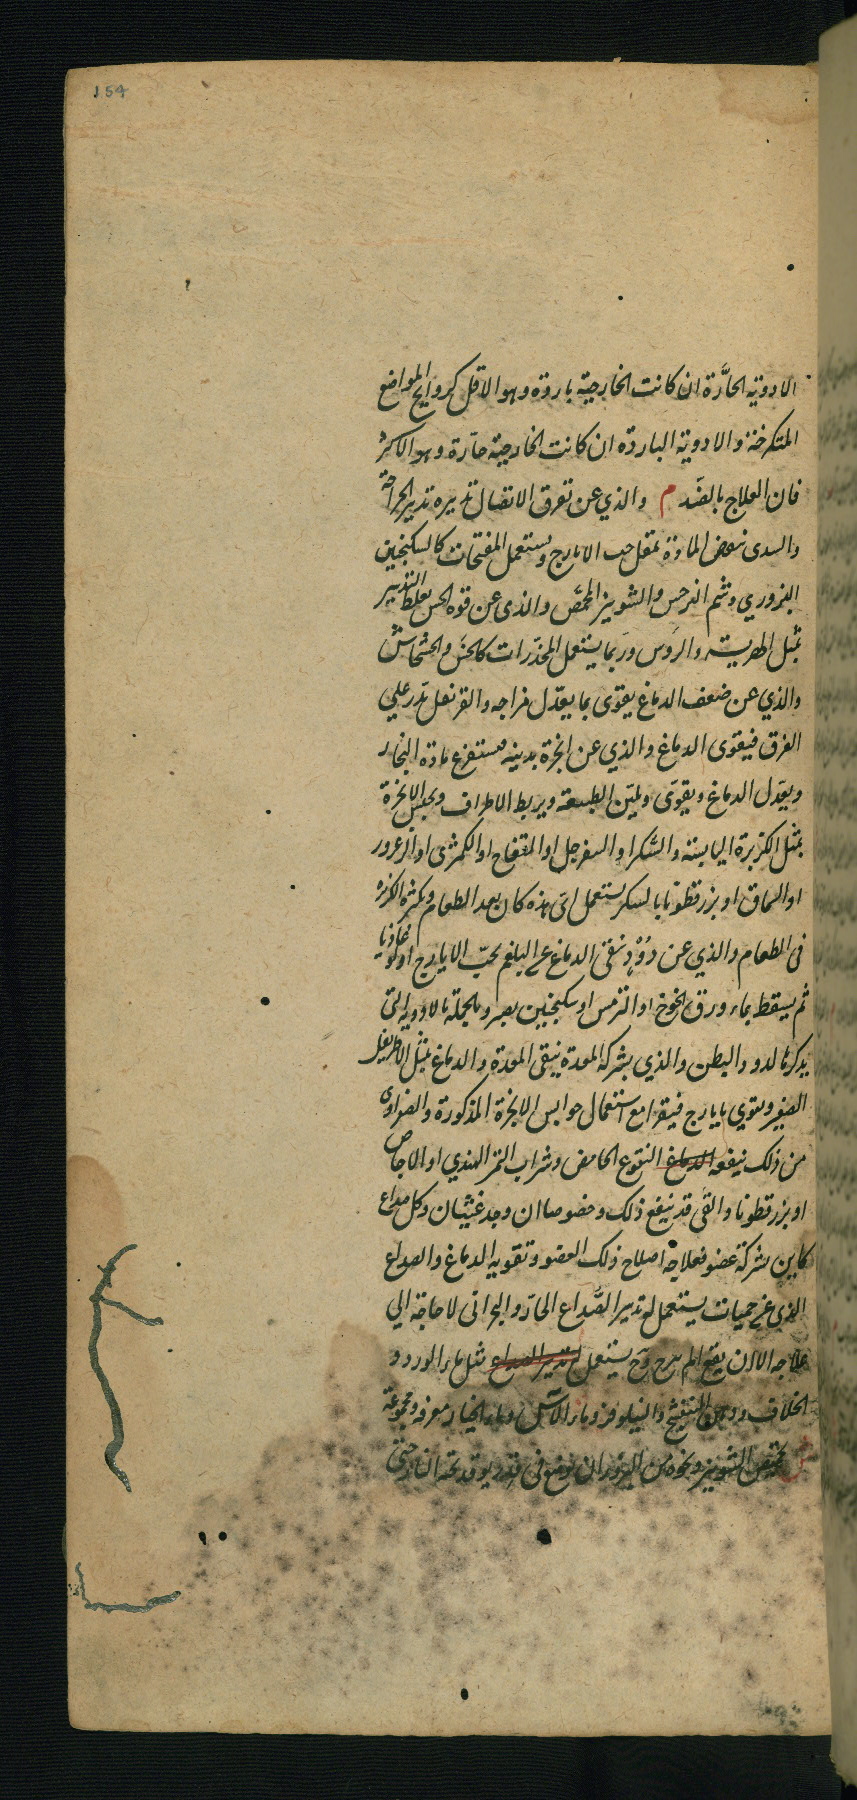 154
الادوية الحارّة ان كانت الخارجية باردة وهو الاقل كروايح المواضع
المتكرخة والادوية الباردة ان كانت الخارجية حارة وهو الاكثر
فان العلاج بالضد م والذي عن تفرق الاتصال تدبيره تدبير الجراحة
والسدى المادة بمثل حب الايارج ويستعمل المفتحات كالسكنجبين
البزوري وشم النرجس والشونيز المحمّص والذى عن قوة الحس يغلظ التدبير
بمثل الهريسة والروس وربما يستعمل المخدّرات كالخس والخشخاش
والذي عن ضعف الدماغ يقوى بما يعدّل مزاجه والقرنفل يذر علي
الفرق فيقوى الدماغ والذي عن ابخرة بدنية يستفرغ مادة البخار
ويعدّل الدماغ ويقوى ويليّن الطبيعة ويربط الاطراف ويحبس الابخرة
بمثل الكزبرة اليابسة والسّكر او السفرجل او التفاح او الكمثرى او الزعرور
او السماق او بزرقطونا بالسكر يستعمل اى هذه كان بعد الطعام ويكثر الكزبرة
فى الطعام والذي عن دُوْد ينقى الدماغ عن البلغم بحبّ الايارج او لوغاذيا
ثم يسقط بماء ورق الخوخ او الترمس او سكنجبين بصبر وبالجملة بالادوية التى
يذكر لدود البطن والذي بشركة المعدة ينقى المعدة والدماغ بمثل الاطريفل
الصغير ويقوي بايارج فيقرا مع استعمال حوابس الابخرة المذكورة والصفراوى
من ذلك ينفعه الدماغ النقوع الحامض وشراب التمر الهندي او الاجاص
او بزرقطونا والقَى قد ينفع ذلك وخصوصا ان وجد غثيان وكل صداع
كاين بشركة عضو فعلاجه اصلاح ذلك العضو وتقوية الدماغ والصداع
الذى عن حميات يستعمل له تدبير الصُّداع الحارّ والبحرانى لا حاجة الي
علاجه الا ان يقع الم مبرح وح يستعمل له تدبير الصداع مثل ماء الورد و
الخلاف ودهن البنفسج والنيلوفر وماء الآس وماء الخيار مفردة ومجموعة
الشونيز ونحوه من البزور ان يوضع فى قدر يوقد تحته النار حتى